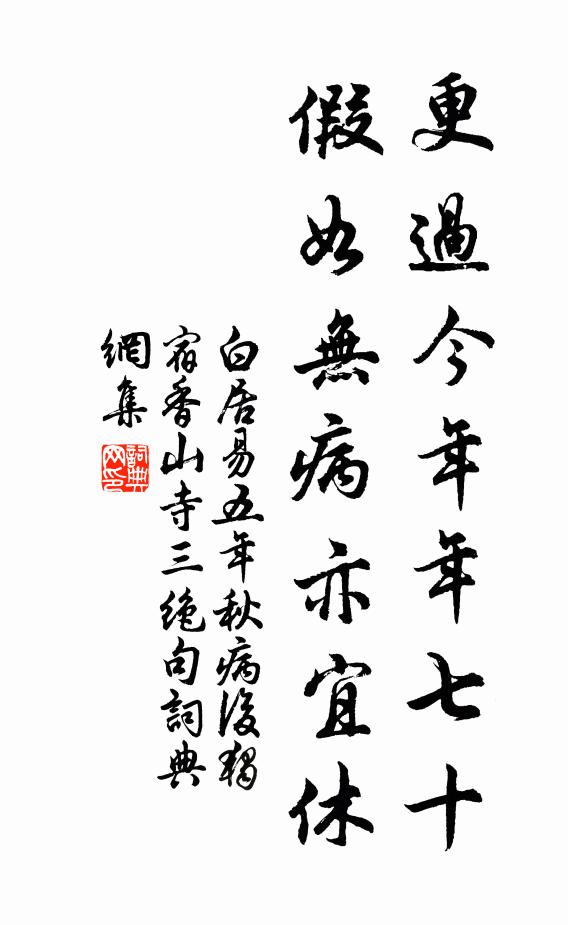 更過今年年七十
假如無病亦宜休
白居易五年秋病後獨
宿香山寺三絶句詞典
網集
詞典网印